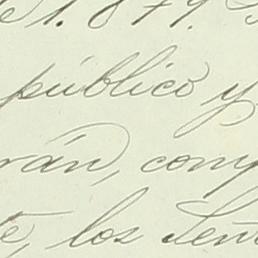 1. 1879.
público y
rán, com
te, los Seño